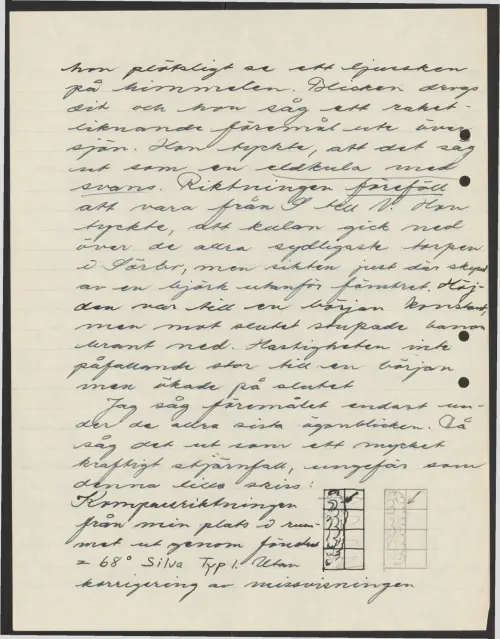 hon plötsligt se ett ljussken
på himmelen. Blicken drogs
dit och hon såg ett raket-
liknande föremål ute över
sjön. Hon tyckte, att det såg
ut som en eldkula med
svans. Riktningen föreföll
att vara från S till V. Hon
tyckte, att kulan gick ned
över de allra sydligaste torpen
i Sörbo, men sikten just där skymd
av en björk utanför fönstret. Höj-
den var till en början konstant,
men mot slutet stupade banan
brant ned. Hastigheten inte
påfallande stor till en början
men ökade på slutet
Jag såg föremålet endast un-
der de allra sista ögonblicken. Då
såg det ut som ett mycket
kraftigt stjärnfall, ungefär som
denna lilla skiss:
Kompassriktningen
från min plats i rum-
met ut genom fönstret
= 68° Silva Typ 1. Utan
korrigering av missvisningen